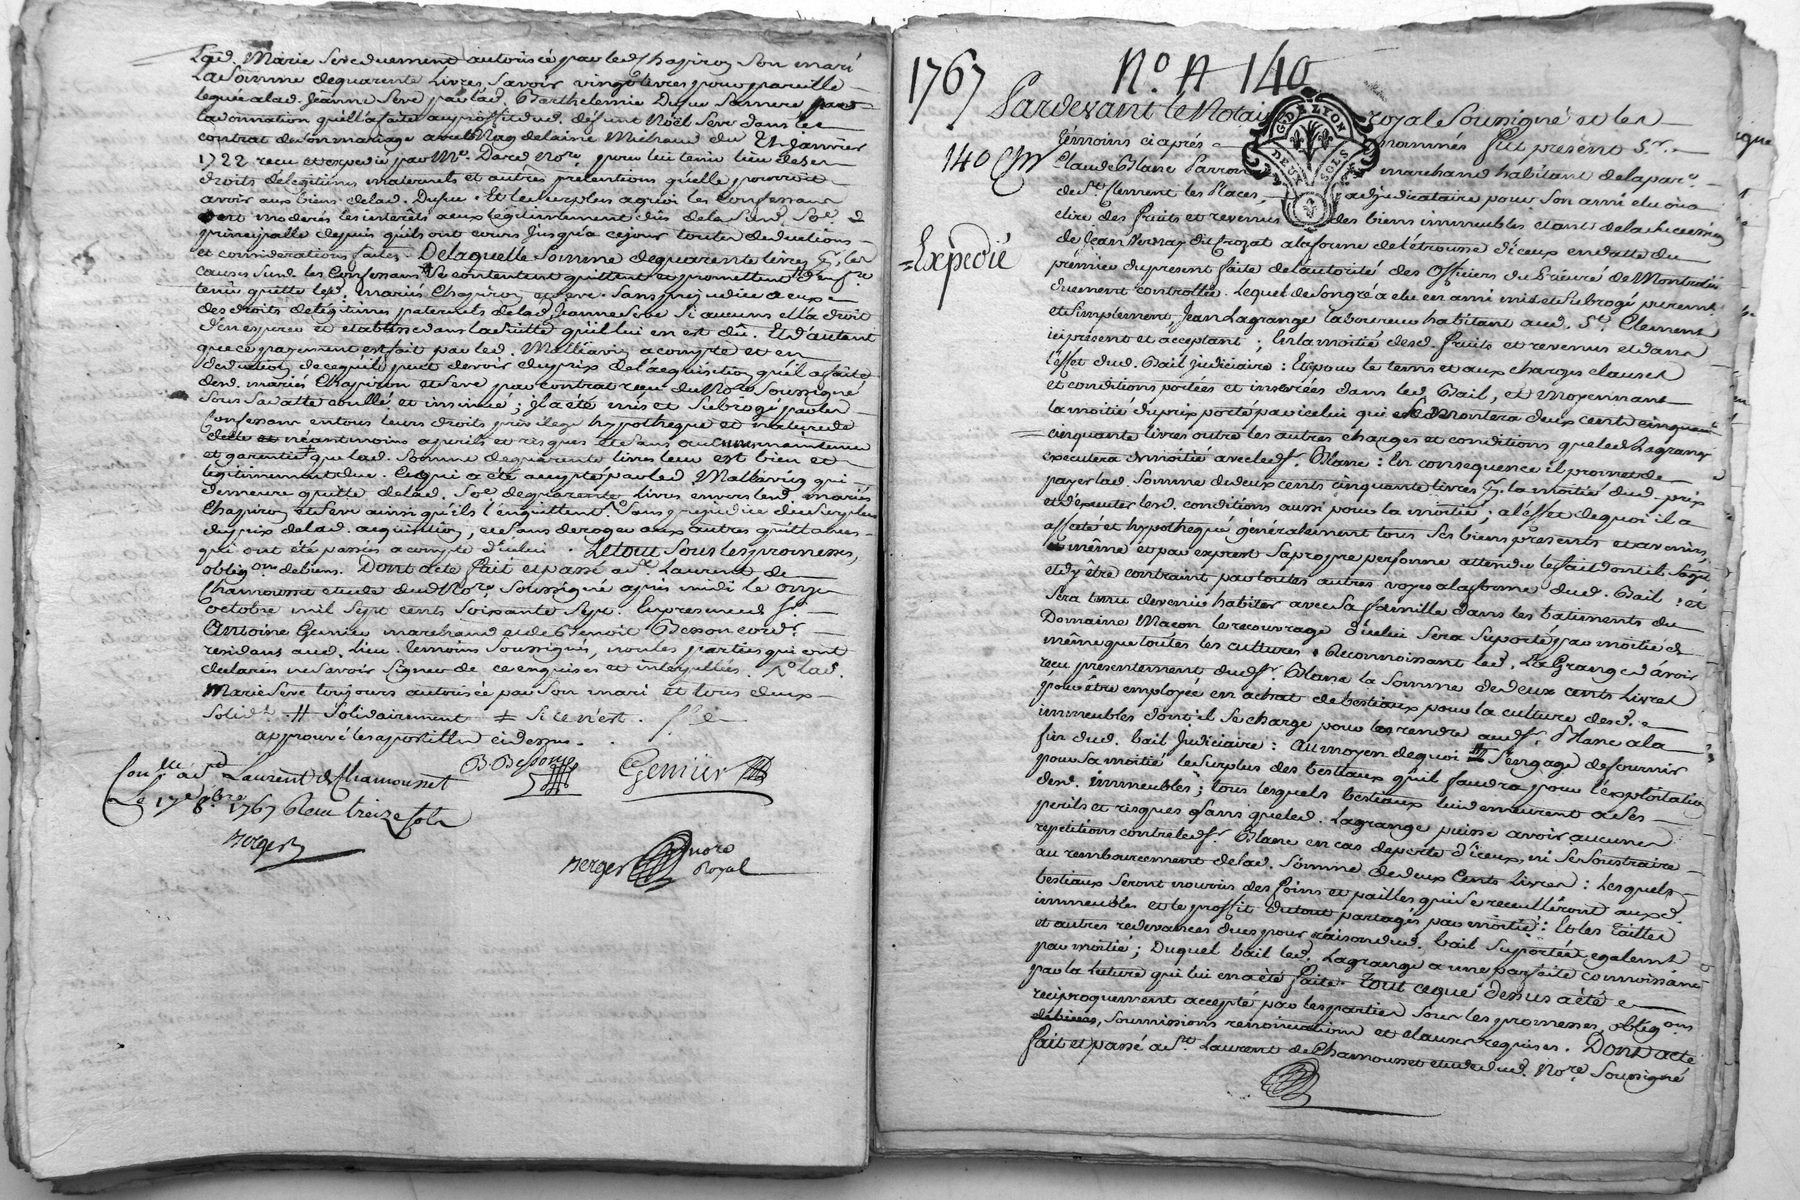 Lad. Marie Seve duement autorisée par led. Chapiron son mari
La somme de quarante livres savoir vingt livres pour pareille
leguée a lad. Jeanne Seve par lad. Barthelemie Dufue sa mere
la donnation qu'ell'a faite au proffit dud. défunt Noël Seve dans le
contrat de son mariage avec Michaud du 21 Janvier
1722 reçu et expedié par Me. Darce Nore. pour lui tenir lieu de ses
droits de légitime maternels et autres prétentions qu'elle pourroit
avoir aux biens de lad. Dufue. Et le surplus a quoi les Confessans
ont moderés les interêts aux légitimement dûs de la susd. Soe.
principalle depuis qu'ils ont cours jusqu'a ce jour toutes deductions
et considerations faites. De laquelle somme de quarante livres les
causes susd. les Confessans se contentent quittent et promettent
tenir quitte led. mariés Chapiron et Seve. Sans prejudice a eux
des droits de légitime paternels de lad. Jeanne Seve si aucuns ell'a droit
d'en esperer et établir dans la suitte qu'il lui en est dû. Et d'autant
que ce payement est fait par led. Mallavin acompte et en
deduction de ce qu'il peut devoir du prix de l'acquisition qu'il a faite
desd. mariés Chapiron et Seve par contrat reçu du Nore. soussigné
sous sa datte controllé et insinué ; il a été mis et subrogé par les
Confessans en tous leurs droits privilege hypotheque et nature de
dette et néantmoins a perils et risques et sans aucune maintenue
et garentie que lad. somme de quarante livres leur est bien et
légitimement due. Ce qui a été accepté par led. Mallavin qui
demeure quitte de lad. Soe. de quarante livres envers lesd. mariés
Chapiron et Seve ainsi qu'ils l'en quittent. sans prejudice du surplus
du prix de lad. acquisition, et sans deroger aux autres quittances
qui ont été passées a compte d'icelui. Le tout sous les promesses,
obligons. de biens. Dont acte fait et passé a St. Laurent de
Chamousset etude dud. Nore. soussigné après midi le onze
octobre mil sept cents soixante sept. En presence de Sr.
Antoine Genier marchand et de Benoit Besson cordr.
residans aud. lieu. temoins soussignés, non les parties qui ont
declarés ne savoir signer de ce enquises et interpellées. lad.
Marie Seve toujours autorisée par son mari et tous deux
solidt. # solidairement ≠ si ce n'est.
approuvé les apostilles ci dessus.
B. Besson
Genier
Conllé. a St. Laurent de Chamousset
Le 17e. 8bre. 1767 Reçu treize sols
Berger
Berger nore Royal
1767
No. A 140
140
Expédié
G. DE LYON
DEUX SOLS
Pardevant le Notaire royal soussigné et les
témoins ci après nommés fut present Sr.
Claude Blanc Parron marchand habitant de la paro.
de St. Clement les Places, adjudicataire pour son ami elu ou a
elire des fruits et revenus des biens immeubles étant de la succession
de Jean Vernay dit frozat a la forme de l'étrousse d'iceux en datte du
prémier du present faite de l'autorité des Officiers du Prieuré de Montrotier
duement controllée. Lequel de son gré a elu en ami mis et subrogé purement
et simplement, Jean Lagrange laboureur habitant aud. St. Clement
ici présent et acceptant ; En la moitié desd. fruits et revenus et dans
l'effet dud. Bail Judiciaire : Et pour le tems et aux charges clauses
et conditions portées et inserées dans led. Bail, et moyennant
la moitié du prix porté par icelui qui se montera deux cent cinquan
cinquante livres outre les autres charges et conditions que led. Lagrange
executera de moitié avec led. Sr. Blanc : En consequence il promet de
payer lad. somme de deux cents cinquante livres la moitié dud. prix
et d'executer lesd. conditions aussi pour la moitié ; a l'effet de quoi il a
affecté et hypothequé généralement tous ses biens presents et avenirs,
même et par exprest sa propre personne attendu le fait dont il s'agit
et d'y être contraint par toutes autres voyes a la forme dud. Bail : et
sera tenu de venir habiter avec sa famille dans les batimens du
Domaine Macon le recouvrage d'icelui sera suporté par moitié de
même que toutes les cultures. Reconnoissant led. La Grange d'avoir
reçu presentement dud. Sr. Blanc la somme de deux cents livres
pour être employée en achat de bestiaux pour la culture desd.
immeubles dont il se charge pour les rendre aud. Sr. Blanc a la
fin dud. bail Judiciaire : Au moyen de quoi s'engage de fournir
pour sa moitié le surplus des bestiaux qu'il faudra pour l'exploitation
desd. immeubles ; tous lesquels bestiaux lui demeurent a ses
perils et risques sans que led. Lagrange puisse avoir aucunes
repetitions contre led. Sr. Blanc en cas de perte d'iceux, ni se soustraire
au remboursement de lad. somme de deux cents livres : Lesquels
bestiaux seront nourris des foins et pailles qui se recuellèront auxd.
immeubles et le proffit du tout partagés par moitié : Et les tailles
et autres redevances dues pour raison dud. bail suportées egalement
par moitié ; Duquel bail led. Lagrange a une parfaite connoissance
par la lecture qui lui en a été faite. Tout ce que dessus a été
reciproquement accepté par les parties sous les promesses, obligons
de biens, soumissions renonciations et clauses requises. Dont acte
fait et passé a St. Laurent de Chamousset etude dud. Nore. soussigné